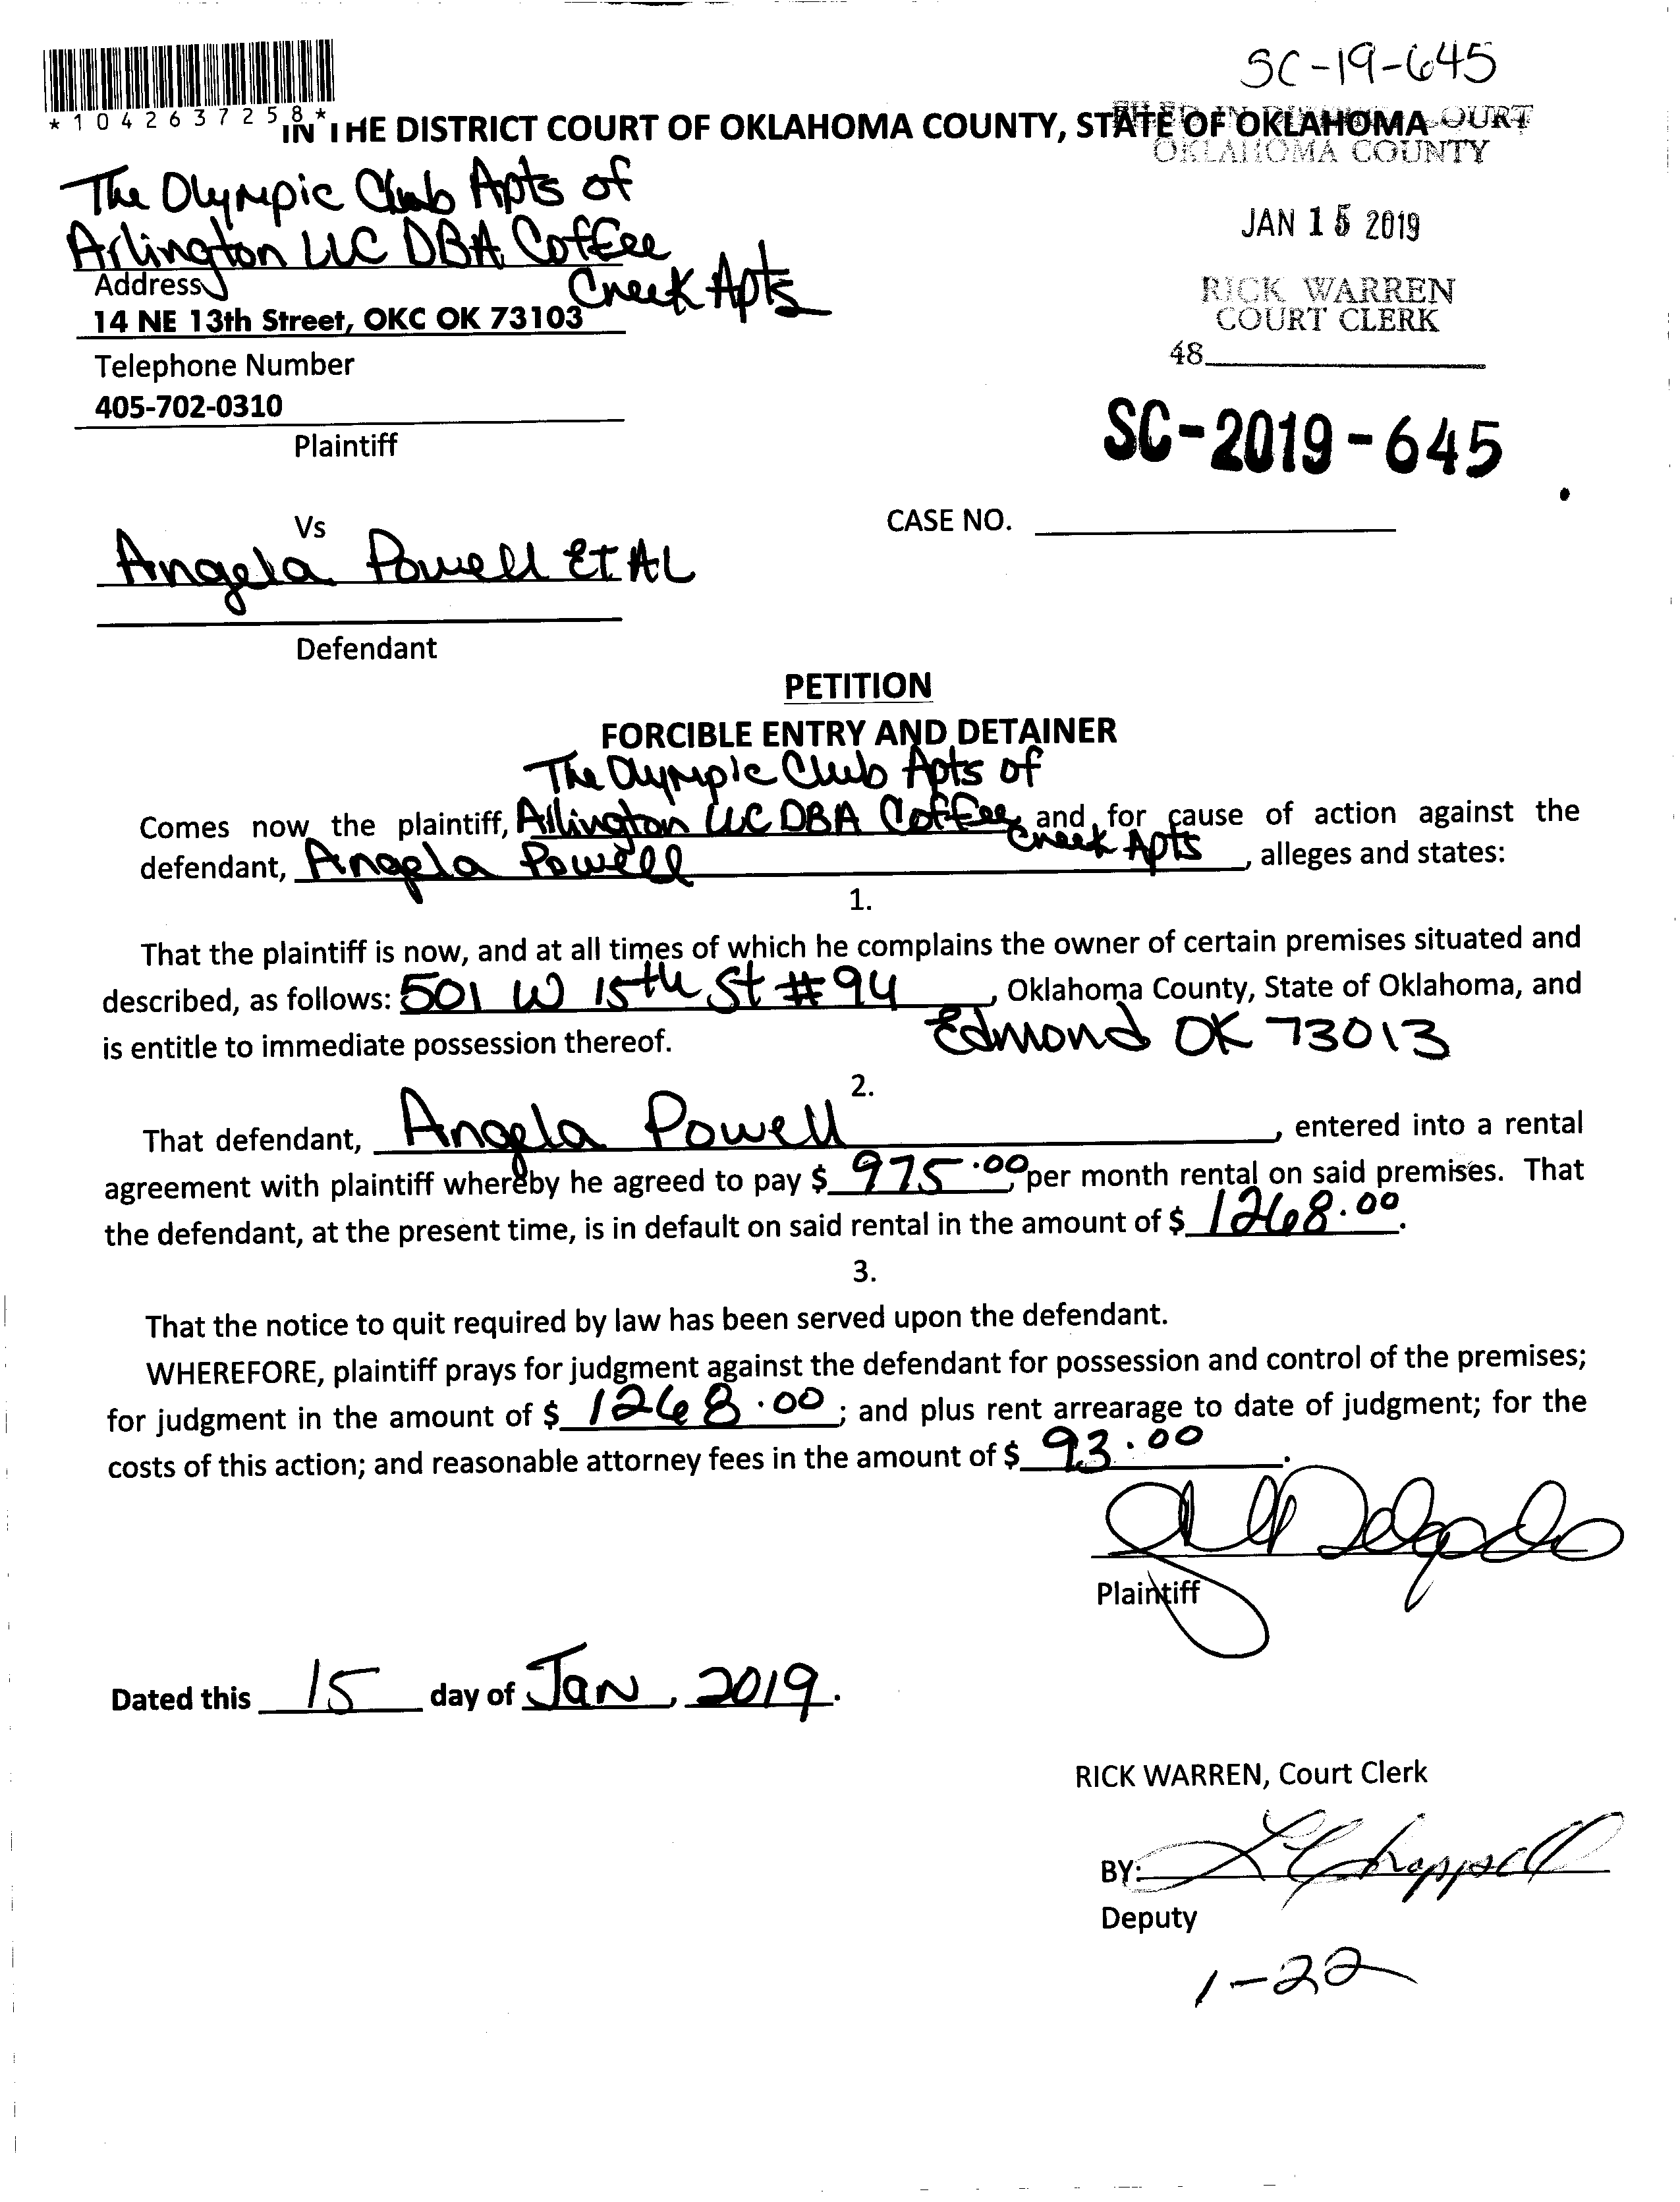 SC-19-645
*1042637258*
IN THE DISTRICT COURT OF OKLAHOMA COUNTY, STATE OF OKLAHOMA
FILED IN DISTRICT COURT
OKLAHOMA COUNTY
The Olympic Club Apts of
Arlington LLC DBA Coffee
Creek Apts
JAN 15 2019
Address
14 NE 13th Street, OKC OK 73103
RICK WARREN
COURT CLERK
Telephone Number
48
405-702-0310
Plaintiff
SC-2019-645
Vs
CASE NO.
Angela Powell Et AL
Defendant
PETITION
FORCIBLE ENTRY AND DETAINER
The Olympic Club Apts of
Comes now the plaintiff, Arlington LLC DBA Coffee Creek Apts and for cause of action against the
defendant, Angela Powell, alleges and states:
1.
That the plaintiff is now, and at all times of which he complains the owner of certain premises situated and
described, as follows: 501 W 15th St #94, Oklahoma County, State of Oklahoma, and
is entitle to immediate possession thereof. Edmond OK 73013
2.
That defendant, Angela Powell, entered into a rental
agreement with plaintiff whereby he agreed to pay $ 975.00, per month rental on said premises. That
the defendant, at the present time, is in default on said rental in the amount of $ 1268.00.
3.
That the notice to quit required by law has been served upon the defendant.
WHEREFORE, plaintiff prays for judgment against the defendant for possession and control of the premises;
for judgment in the amount of $ 1268.00; and plus rent arrearage to date of judgment; for the
costs of this action; and reasonable attorney fees in the amount of $ 93.00.
Delgado
Plaintiff
Dated this 15 day of Jan, 2019.
RICK WARREN, Court Clerk
BY: Chappell
Deputy
1-22